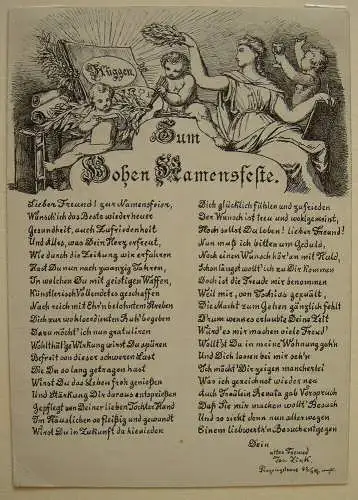 Flüggen.
Zum
Hohen Namensfeste.
Lieber Freund! zur Namensfeier,
Wünsch' ich das Beste wieder heuer
Gesundheit, auch Zufriedenheit
Und Alles, was Dein Herz erfreut,
Wie durch die Zeitung wir erfahren
Hast Du nun nach zwanzig Jahren,
In welchen Du mit geistigen Waffen,
Künstlerisch Vollendetes geschaffen
Nach reich mit Ehr'n belohntem Streben
Dich zur wohlverdienten Ruh' begeben
Darum möcht' ich nun gratuliren
Wohlthät'ge Wirkung wirst Du spüren
Befreit von dieser schweren Last
Die Du so lang getragen hast
Wirst Du das Leben froh genießen
Und Stärkung Dir daraus entsprießen
Gepflegt von Deiner lieben Tochter Hand
Im Häuslichen so fleißig und gewandt
Wirst Du in Zukunft da hienieden
Dich glücklich fühlen und zufrieden
Der Wunsch ist treu und wohlgemeint,
Hoch sollst Du leben! lieber Freund!
Nun muß ich bitten um Geduld,
Noch einen Wunsch hör' an mit Huld,
Schon längst wollt' ich zu Dir kommen
Doch ist die Freude mir benommen
Weil mir, von Podagra gequält,
Die Macht zum Gehen gänzlich fehlt
Drum wenn es erlaubte Deine Zeit
Würd' es mir machen viele Freud'
Wollt'st Du in meine Wohnung geh'n
Und Dich lassen bei mir seh'n
Ich möcht' Dir zeigen mancherlei
Was ich gezeichnet wieder neu
Auch Fräulein Renata gab Versprach
Daß Sie mir machen woll't Besuch
Und so sieht denn nun allerwegen
Einem liebwerth'n Besuch entgegen
Dein
alter Freund